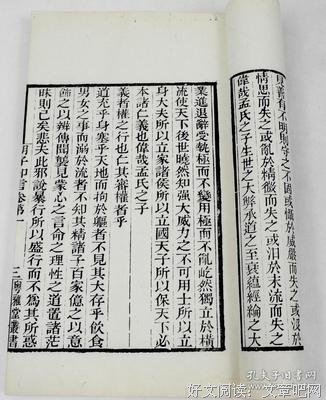 見善有不明則守之不固或懾於威嚴而失之或沒於
情思而失之或亂於精微而失之或汨於末流而失之
偉哉孟氏之子生世之大弊承道之至衰蘊經綸之大
業進退辭受執極而不變用極而不亂屹然獨立於橫
流使天下後世曉然知強大威力之不可用士所以立
身大夫所以立家諸侯所以立國天子所以保天下必
本諸仁義也偉哉孟氏之子
義者權之行也仁其審權者乎
道充乎身塞乎天地而拘於軀者不見其大存乎飲食
男女之事而溺於流者不知其精諸子百家億之以意
飾之以辨傳聞襲見蒙心之言命之理性之道置諸茫
昧則已矣悲夫此邪說暴行所以盛行而不為其所惑
胡子知言卷第一
三
粤雅堂叢書
孔夫子旧书网
好文阅读：文章吧网